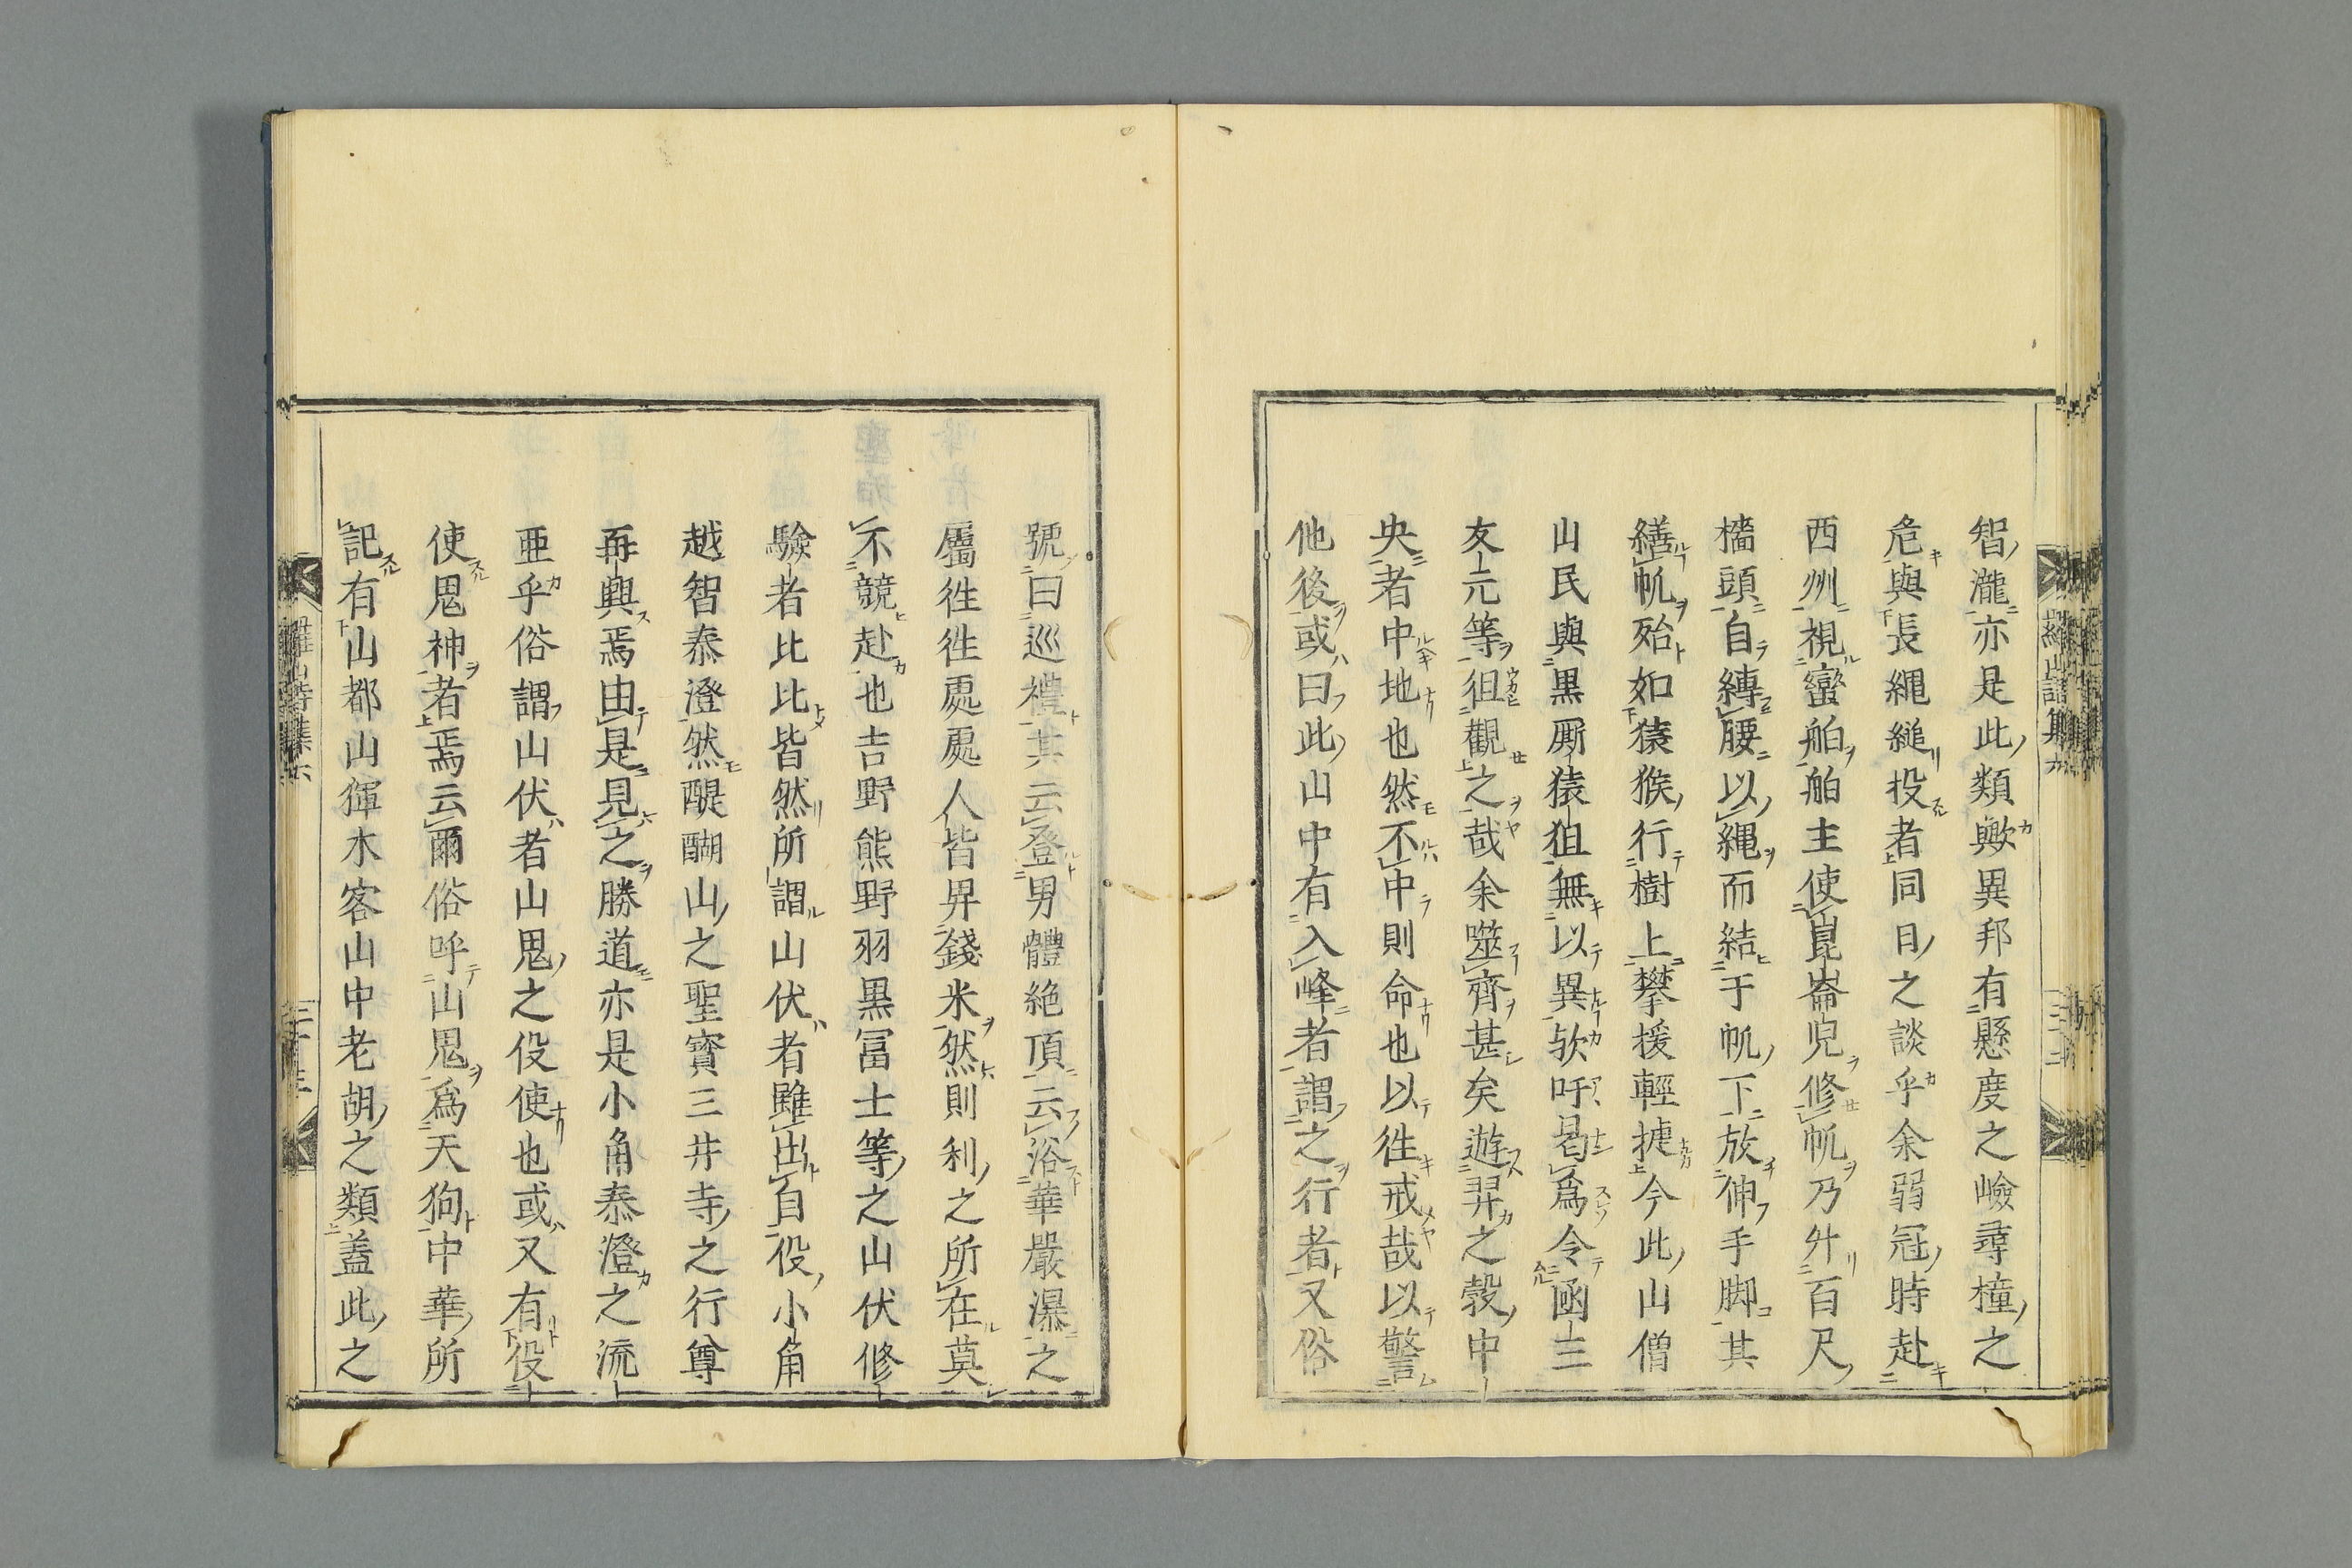 智瀧亦是此類歟異邦有懸度之嶮尋橦之
危與長繩縋投者同日之談乎余弱冠時赴
西州視蠻舶舶主使崑崙兒修帆乃升百尺
檣頭自縛腰以繩而結于帆下放伸手脚其
繕帆殆如猿猴行樹上攀援輕捷今此山僧
山民與黒厮猿狙無以異欤吁曷爲令函三
友元等徂觀之哉余噬齊甚矣遊羿之彀中
央者中地也然不中則命也以徃戒哉以警
他後或曰此山中有入峰者謂之行者又俗
號曰巡禮其云登男體絶頂云浴華嚴瀑之
屬徃徃處處人皆畀錢米然則利之所在莫
不競赴也吉野熊野羽黒冨士等之山伏修
驗者比比皆然所謂山伏者雖出自役小角
越智泰澄然醍醐山之聖寳三井寺之行尊
再興焉由是見之勝道亦是小角泰澄之流
亜乎俗謂山伏者山鬼之役使也或又有役
使鬼神者焉云爾俗呼山鬼爲天狗中華所
記有山都山猙木客山中老胡之類蓋此之
羅山詩集六
三十三